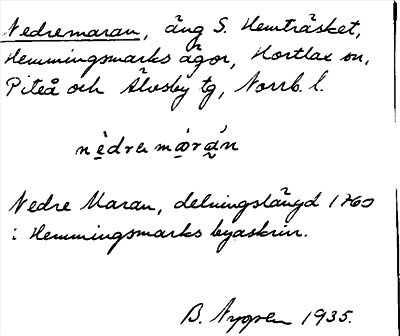 Nedremaran, äng S. Hemträsket,
Hemmingsmarks ägor, Hortlax sn,
Piteå och Älvsby tg, Norrb. l.
nèdrɛ må̀rá̰n
Nedre Maran, delningslängd 1760
i Hemmingsmarks byaskrin.
B. Nygren 1935.